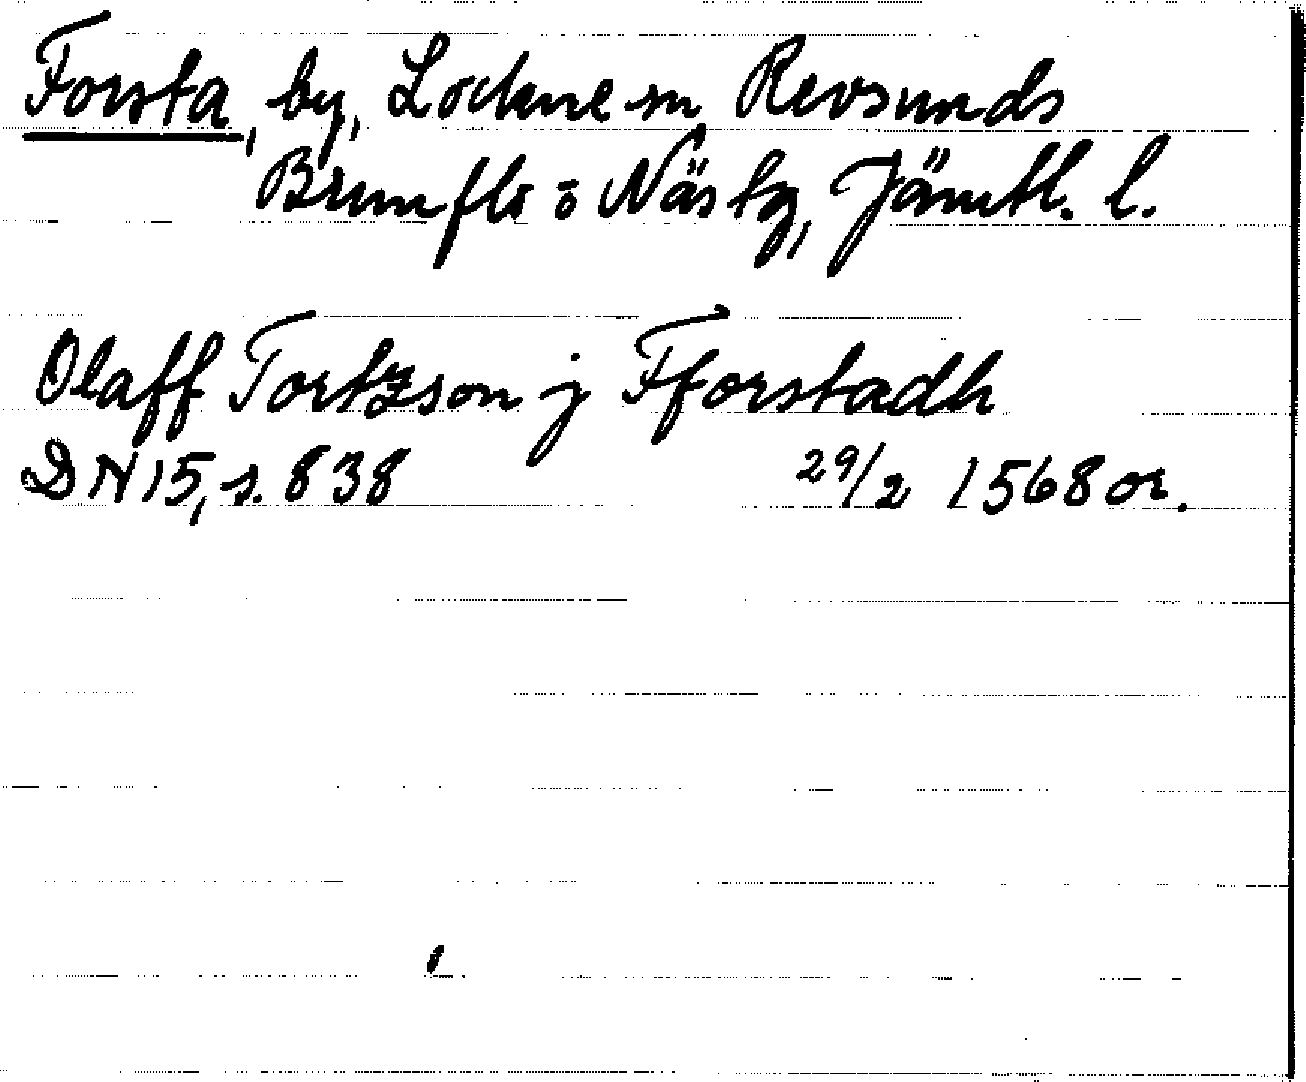 Forsta, by, Lockne sn Revsunds
Brunflo o Näs tg, Jämtl. l.
Olaff Tortzson j Fforstadh
DN 15, s. 838 29/2 1568 or.